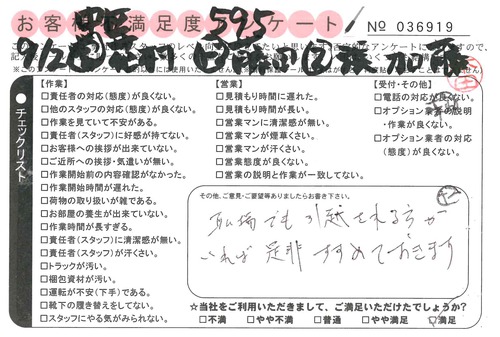 お客様満足度アンケート！
№ 036919
595
9/2
加藤
チェックリスト
【作業】
□責任者の対応(態度)が良くない。
□他のスタッフの対応(態度)が良くない。
□作業を見ていて不安がある。
□責任者(スタッフ)に好感が持てない。
□お客様への挨拶が出来ていない。
□ご近所への挨拶・気遣いが無い。
□作業開始前の内容確認がなかった。
□作業開始時間が遅れた。
□荷物の取り扱いが雑である。
□お部屋の養生が出来ていない。
□作業時間が長すぎる。
□責任者(スタッフ)に清潔感が無い。
□責任者(スタッフ)が汗くさい。
□トラックが汚い。
□梱包資材が汚い。
□運転が不安(下手)である。
□靴下の履き替えをしてない。
□スタッフにやる気がみられない。
【営業】
□見積もり時間に遅れた。
□見積もり時間が長い。
□営業マンに清潔感が無い。
□営業マンが煙草くさい。
□営業マンが汗くさい。
□営業態度が良くない。
□営業の説明と作業が一致してない。
【受付・その他】
□電話の対応が良くない
□オプション業者の説明
・作業が良くない。
□オプション業者の対応
(態度)が良くない。
その他、ご意見・ご要望等ありましたらお書き下さい。
引越される方が
いれば是非すすめておきます
☆当社をご利用いただきまして、ご満足いただけたでしょうか?
□不満 □やや不満 □普通 □やや満足 □満足